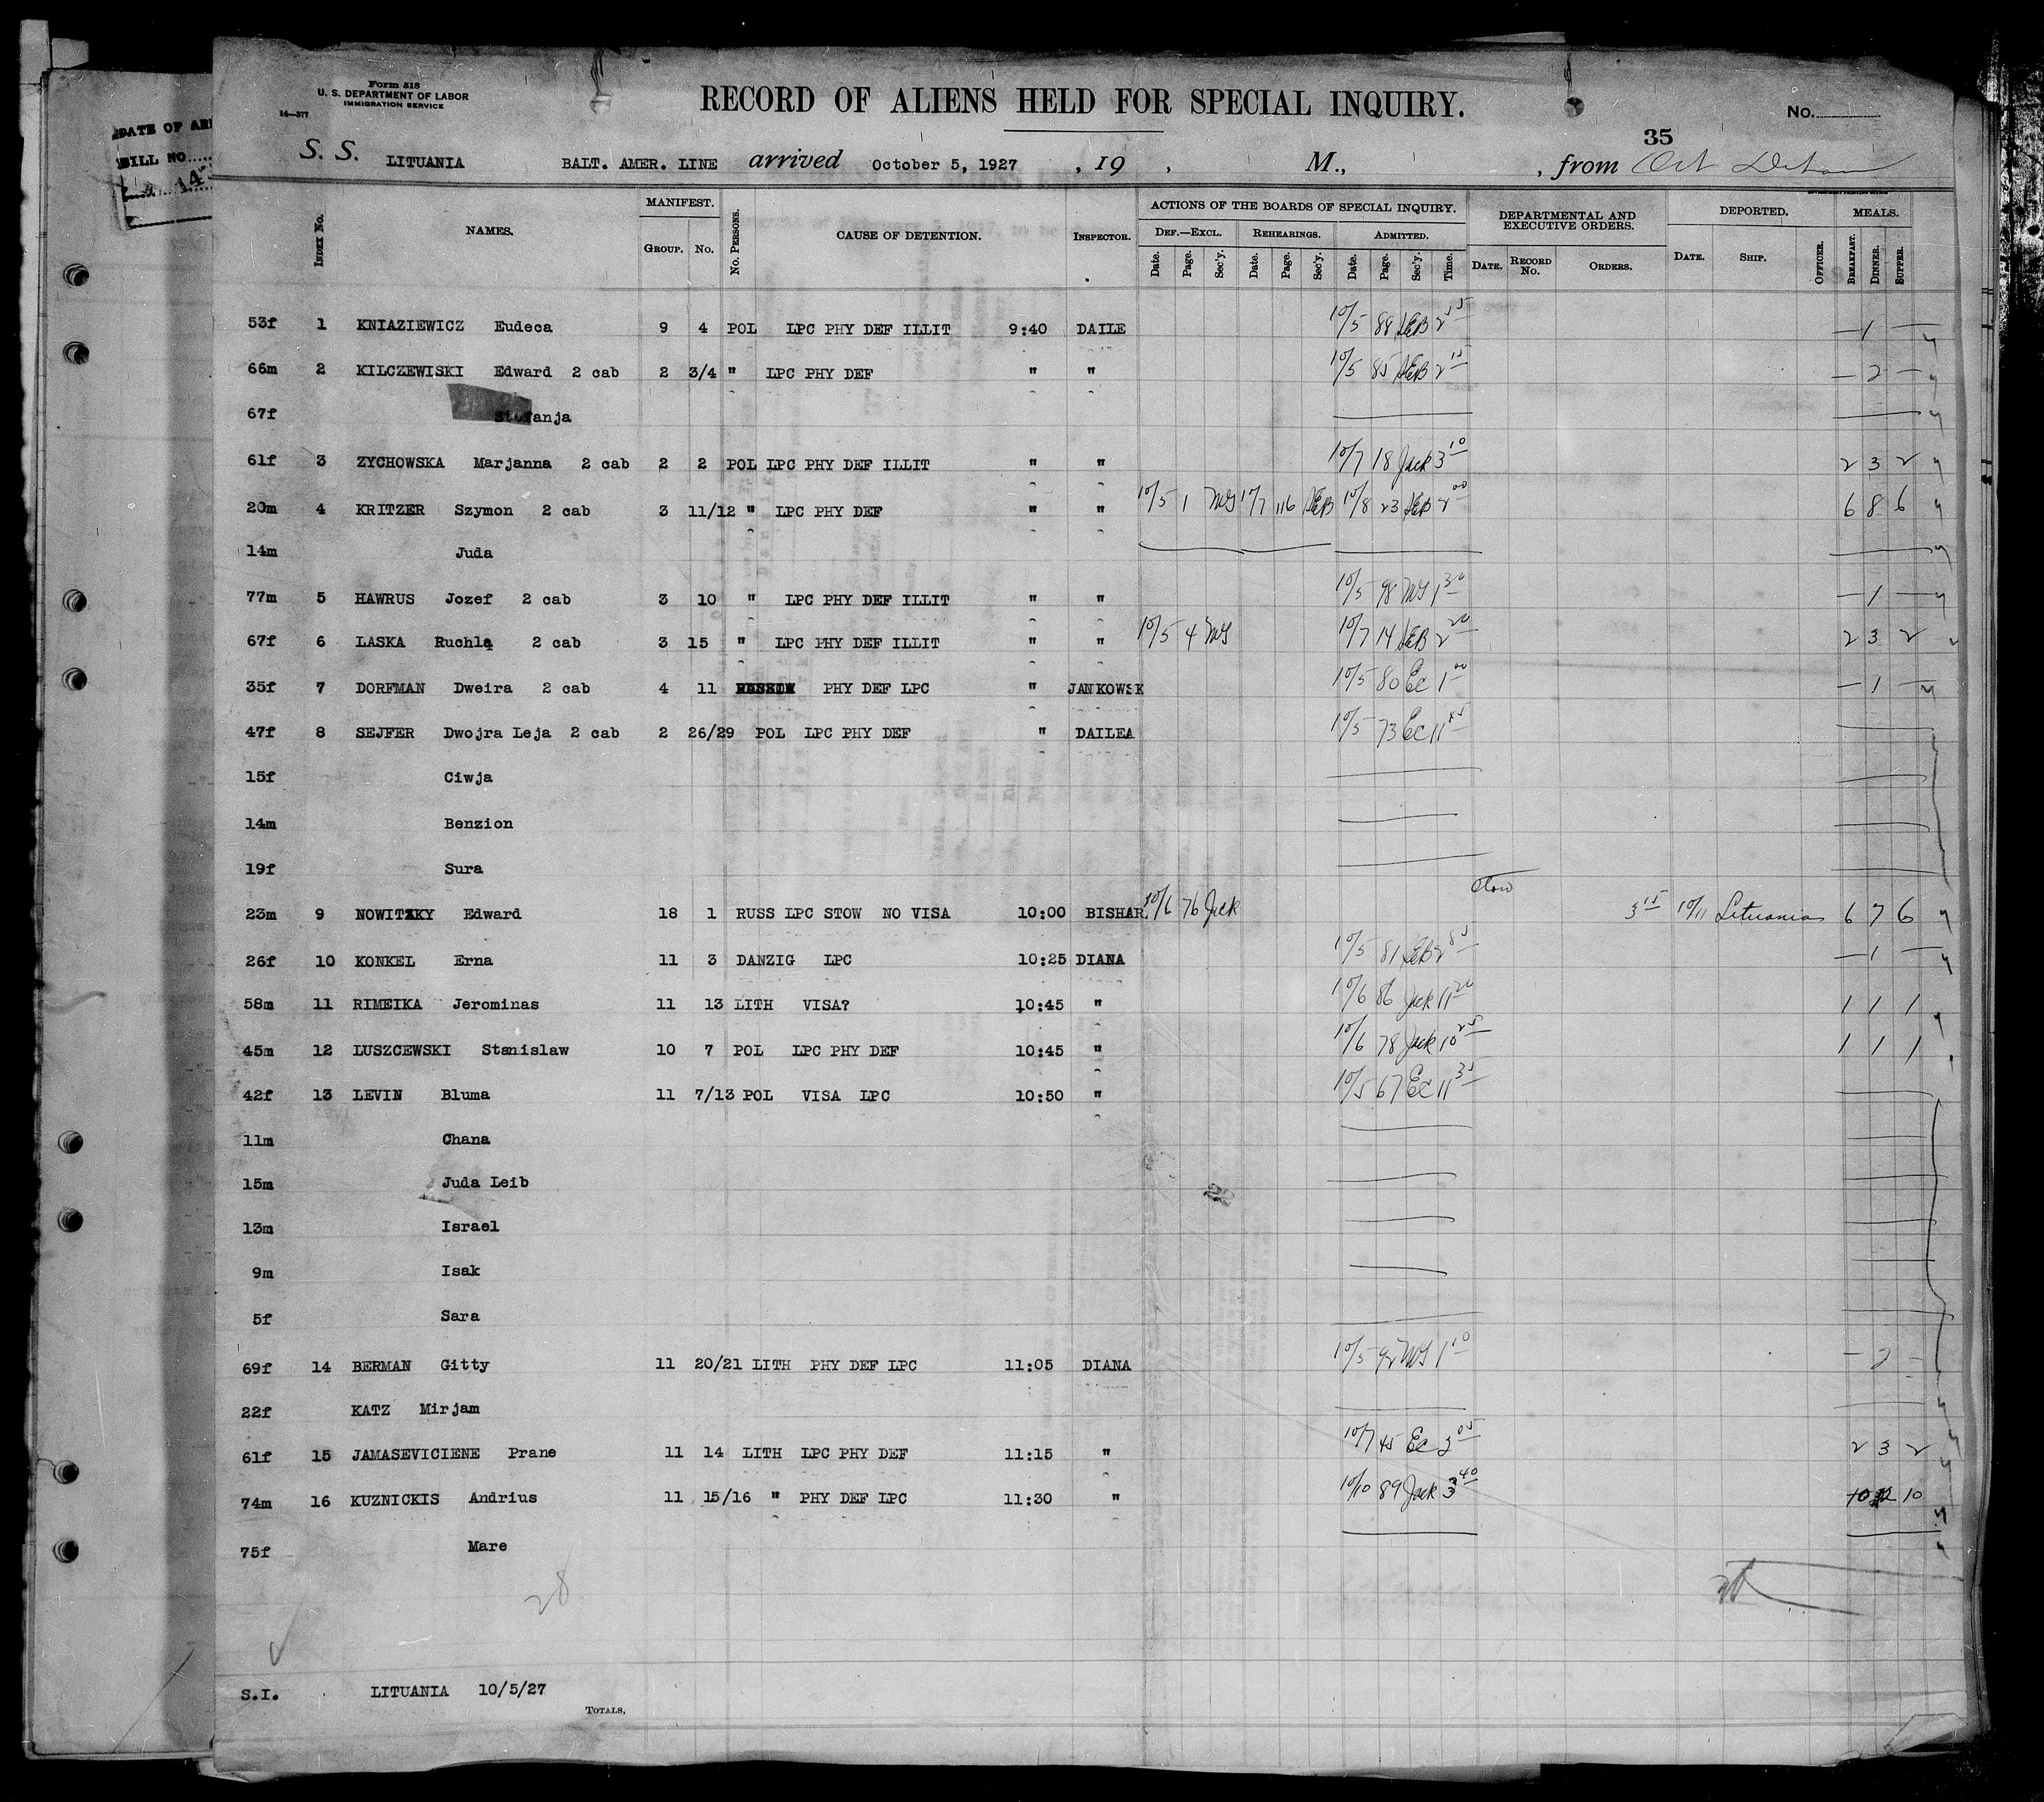 DATE OF AR
BILL NO.....
14
Form 518
U. S. DEPARTMENT OF LABOR
IMMIGRATION SERVICE
14—377
RECORD OF ALIENS HELD FOR SPECIAL INQUIRY.
No.
35
S. S. LITUANIA BALT. AMER. LINE arrived October 5, 1927 , 19 , M., , from
INDEX No. NAMES. MANIFEST. GROUP. No. No. PERSONS. CAUSE OF DETENTION. INSPECTOR. ACTIONS OF THE BOARDS OF SPECIAL INQUIRY. DEF.—EXCL. REHEARINGS. ADMITTED. DEPARTMENTAL AND EXECUTIVE ORDERS. DEPORTED. MEALS.
Date. Page. Sec'y. Date. Page. Sec'y. Date. Page. Sec'y. Time. DATE. RECORD No. ORDERS. DATE. SHIP. OFFICER. BREAKFAST. DINNER. SUPPER.
53f 1 KNIAZIEWICZ Eudeca 9 4 POL LPC PHY DEF ILLIT 9:40 DAILE 10/5 88 DEB — 1 —
66m 2 KILCZEWISKI Edward 2 cab 2 3/4 " LPC PHY DEF " " 10/5 85 DEB 2 15 — 2 —
67f Stefanja
61f 3 ZYCHOWSKA Marjanna 2 cab 2 2 POL LPC PHY DEF ILLIT " " 10/7 18 Jack 3 10 2 3 2
20m 4 KRITZER Szymon 2 cab 3 11/12 " LPC PHY DEF " " 10/5 1 MG 10/7 116 DEB 10/8 23 DEB 2 00 6 8 6
14m Juda
77m 5 HAWRUS Jozef 2 cab 3 10 " LPC PHY DEF ILLIT " " 10/5 98 MG 1 30 — 1 —
67f 6 LASKA Ruchla 2 cab 3 15 " LPC PHY DEF ILLIT " " 10/5 4 MG 10/7 14 DEB 2 20 2 3 2
35f 7 DORFMAN Dweira 2 cab 4 11 PHY DEF LPC " JANKOWSK 10/5 80 EC 1 00 — 1 —
47f 8 SEJFER Dwojra Leja 2 cab 2 26/29 POL LPC PHY DEF " DAILEA 10/5 73 EC 11 45
15f Ciwja
14m Benzion
19f Sura
23m 9 NOWITZKY Edward 18 1 RUSS LPC STOW NO VISA 10:00 BISHAR 10/6 76 Jack 3 15 10/11 Lituania 6 7 6
26f 10 KONKEL Erna 11 3 DANZIG LPC 10:25 DIANA 10/5 81 DEB — 1 —
58m 11 RIMEIKA Jerominas 11 13 LITH VISA? 10:45 " 10/6 86 Jack 11 20 1 1 1
45m 12 LUSZCEWSKI Stanislaw 10 7 POL LPC PHY DEF 10:45 " 10/6 78 Jack 10 25 1 1 1
42f 13 LEVIN Bluma 11 7/13 POL VISA LPC 10:50 " 10/5 67 EC 11 35
11m Chana
15m Juda Leib
13m Israel
9m Isak
5f Sara
69f 14 BERMAN Gitty 11 20/21 LITH PHY DEF LPC 11:05 DIANA 10/5 92 MG 1 10 — 2 —
22f KATZ Mirjam
61f 15 JAMASEVICIENE Prane 11 14 LITH LPC PHY DEF 11:15 " 10/7 45 EC 3 05 2 3 2
74m 16 KUZNICKIS Andrius 11 15/16 " PHY DEF LPC 11:30 " 10/10 89 Jack 3 40 10 12 10
75f Mare
28
S.I. LITUANIA 10/5/27
TOTALS,